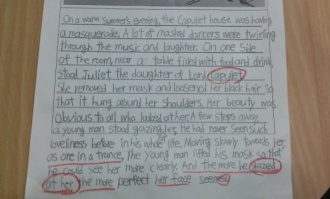 On a warm summer's evening, the Capulet house was having
a masquerade. A lot of masked dancers were twirling
through the music and laughter. On one side
of the room, near a table filled with food and drink,
stood Juliet the daughter of Lord Capulet
She removed her mask and loosened her black hair so
that it hung around her shoulders. Her beauty was
obvious to all who looked at her. A few steps away,
a young man stood gazing her. He had never seen such
loveliness before in his whole life. Moving slowly towards her,
as one in a trance, the young man lifted his mask so that
he could see her more clearly. And the more he gazed
at her the more perfect her face seemed